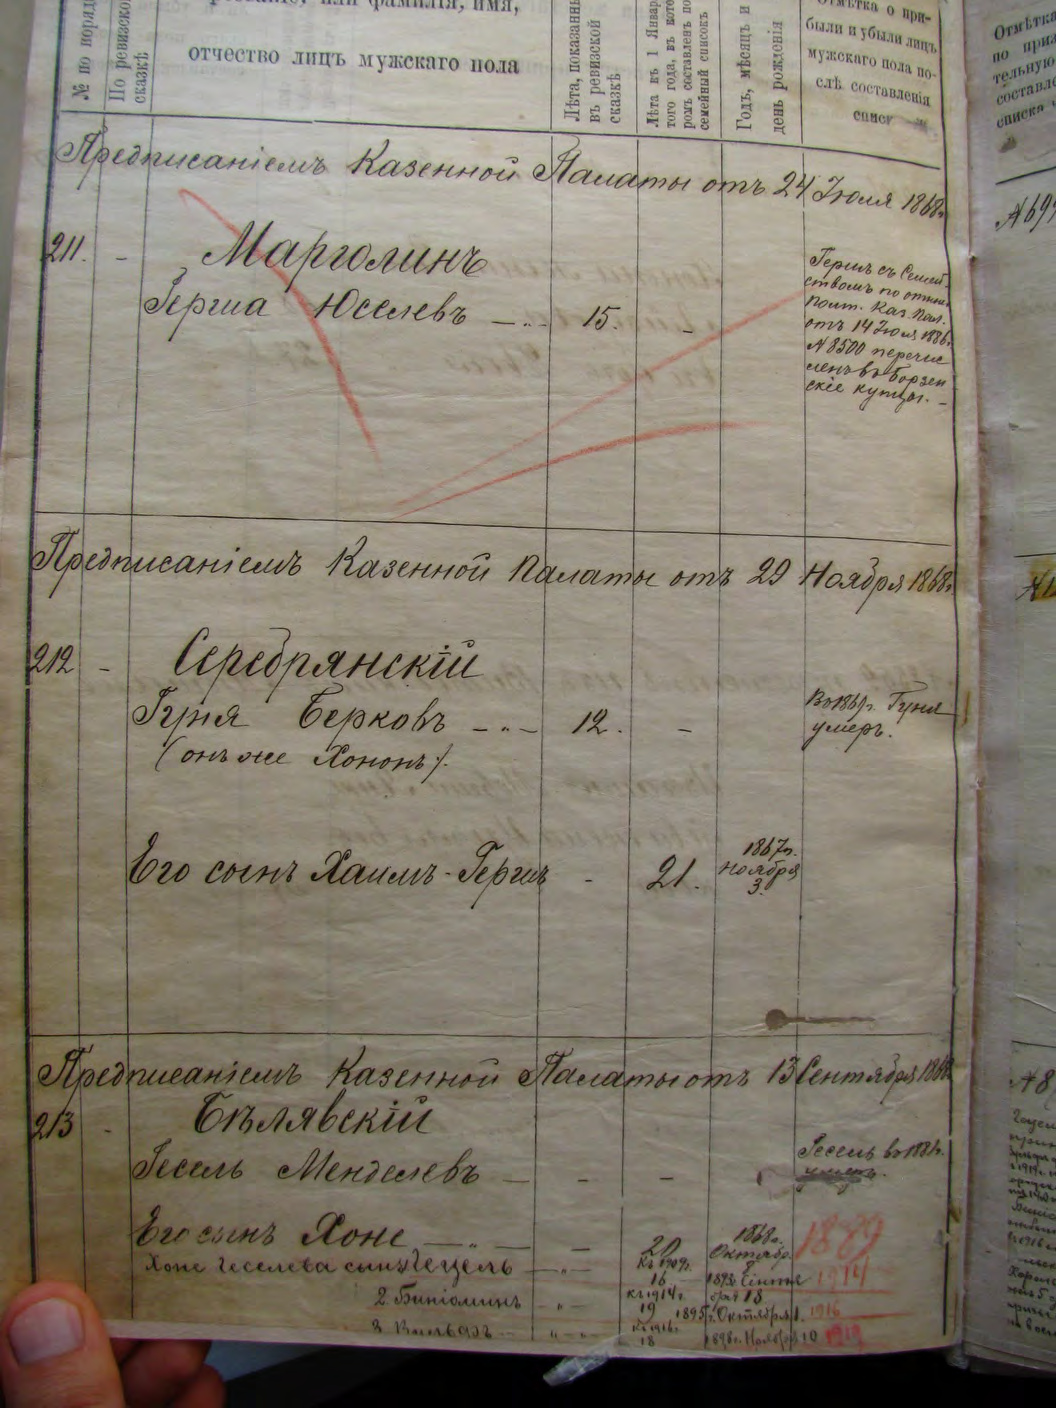 № по поряд
По ревизско
сказкѣ
или фамилія, имя,
отчество лицъ мужскаго пола
Лѣта, показанны
въ ревизской
сказкѣ
Лѣта къ 1 Январ
того года, въ кото
ромъ составленъ по
семейный списокъ
Годъ, мѣсяцъ и
день рожденія
Отмѣтка о при-
были и убыли лицъ
мужскаго пола по-
слѣ составленія
Отмѣтка
по приз
тельную
составле
списка
Предписаніемъ Казенной Палаты отъ 24 Іюля 1868г.
211. -
Марголинъ
Герша Юселевъ 15. -
Гершъ съ Семей-
ствомъ по отнош.
Полт. Каз. Пал.
отъ 14 Іюля 1886г.
№ 8500 перечис
ленъ въ Борзен
скіе купцы. -
№ 697
Предписаніемъ Казенной Палаты отъ 29 Ноября 1868г.
212 -
Серебрянскій
Гуня Берковъ 12. -
(онъ же Хононъ).
Гуня
умеръ.
Его сынъ Хаимъ-Гершъ - 21. 1867г. Ноября 3.
Предписаніемъ Казенной Палаты отъ 13 Сентября
213 -
Бѣлявскій
Гесель Менделевъ - - -
Гесель въ
умеръ.
Его сынъ Хоне - 20 1868г. Октябр. 8 1889
Хоне Геселева сынъ Гецель къ 1909г. 16 1914
2. Биніоминъ къ 1914г. 19 1895г. Октября 1. 1916
3 къ 1916г. 18 1898г. Ноября 10 1919